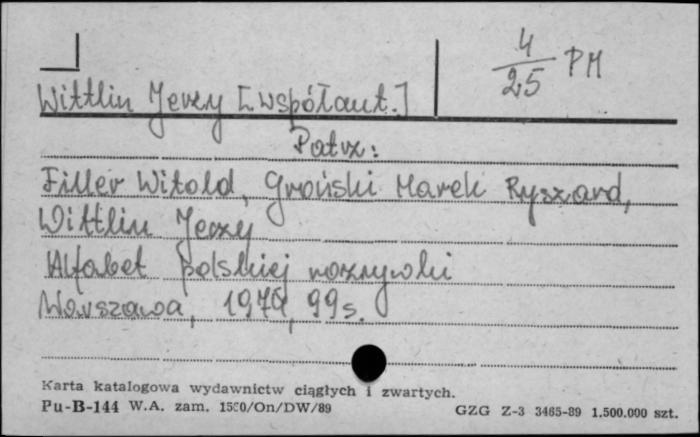 4/25 PM
Wittlin Jerzy [współaut.]
Patrz:
Filler Witold, Groński Marek Ryszard,
Wittlin Jerzy
Alfabet polskiej rozrywki
Warszawa, 1979, 99 s.
Karta katalogowa wydawnictw ciągłych i zwartych.
Pu-B-144 W.A. zam. 1580/On/DW/89 GZG Z-3 3465-89 1.500.000 szt.